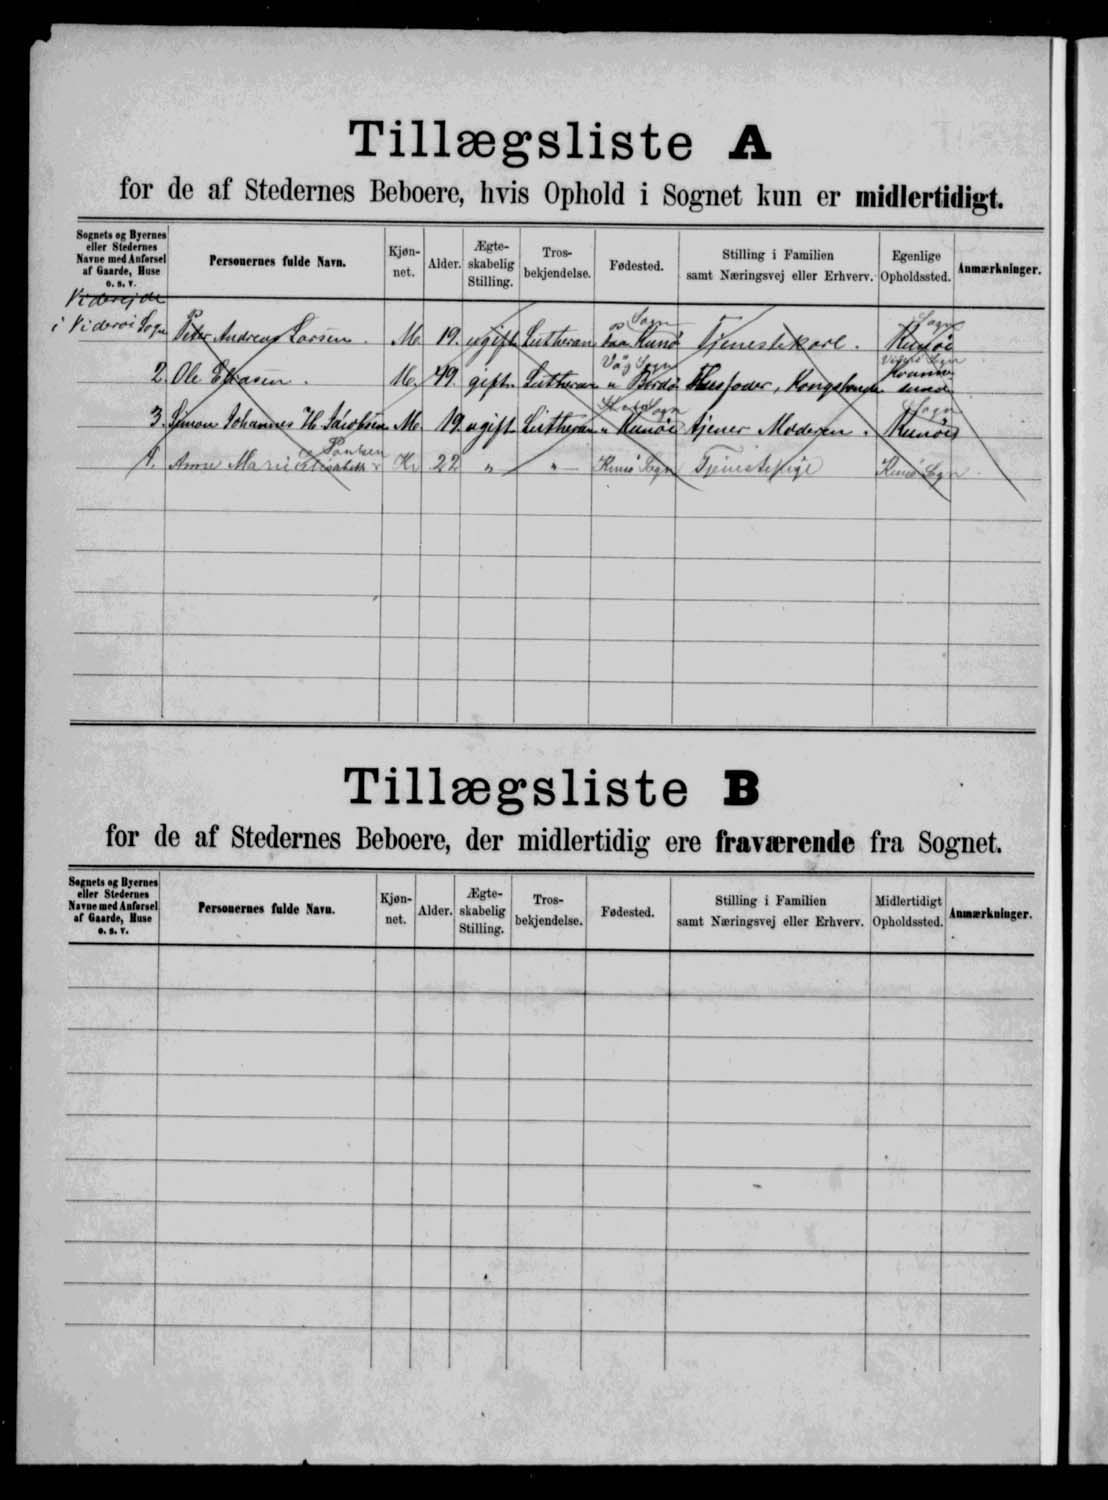 Tillægsliste A
for de af Stedernes Beboere, hvis Ophold i Sognet kun er midlertidigt.
Sognets og Byernes eller Stedernes Navne med Anførsel af Gaarde, Huse o. s. v.
Personernes fulde Navn.
Kjøn-
net.
Alder.
Ægte-
skabelig
Stilling.
Tros-
bekjendelse.
Fødested.
Stilling i Familien
samt Næringsvej eller Erhverv.
Egenlige
Opholdssted.
Anmærkninger.
Viderejde
i Viderøi Sogn Peter Andreas Larsen. M. 19. ugift Lutheran paa Kunø Sogn Tjenestekarl. Kunøi Sogn
2. Ole M. 49. gift. Lutheran " Bordø Våg Sogn Husfader, Kongsbonde
3. Simon Johannes H. Jacobsen M. 19. ugift Lutheran " Kunøi Sogn tjener Moderen. Kunøi Sogn
Anne Marie Elisabeth Poulsen 22 " " Kunø Sogn Tjenestepige Kunø Sogn
Tillægsliste B
for de af Stedernes Beboere, der midlertidig ere fraværende fra Sognet.
Sognets og Byernes eller Stedernes Navne med Anførsel af Gaarde, Huse o. s. v.
Personernes fulde Navn.
Kjøn-
net.
Alder.
Ægte-
skabelig
Stilling.
Tros-
bekjendelse.
Fødested.
Stilling i Familien
samt Næringsvej eller Erhverv.
Midlertidigt
Opholdssted.
Anmærkninger.